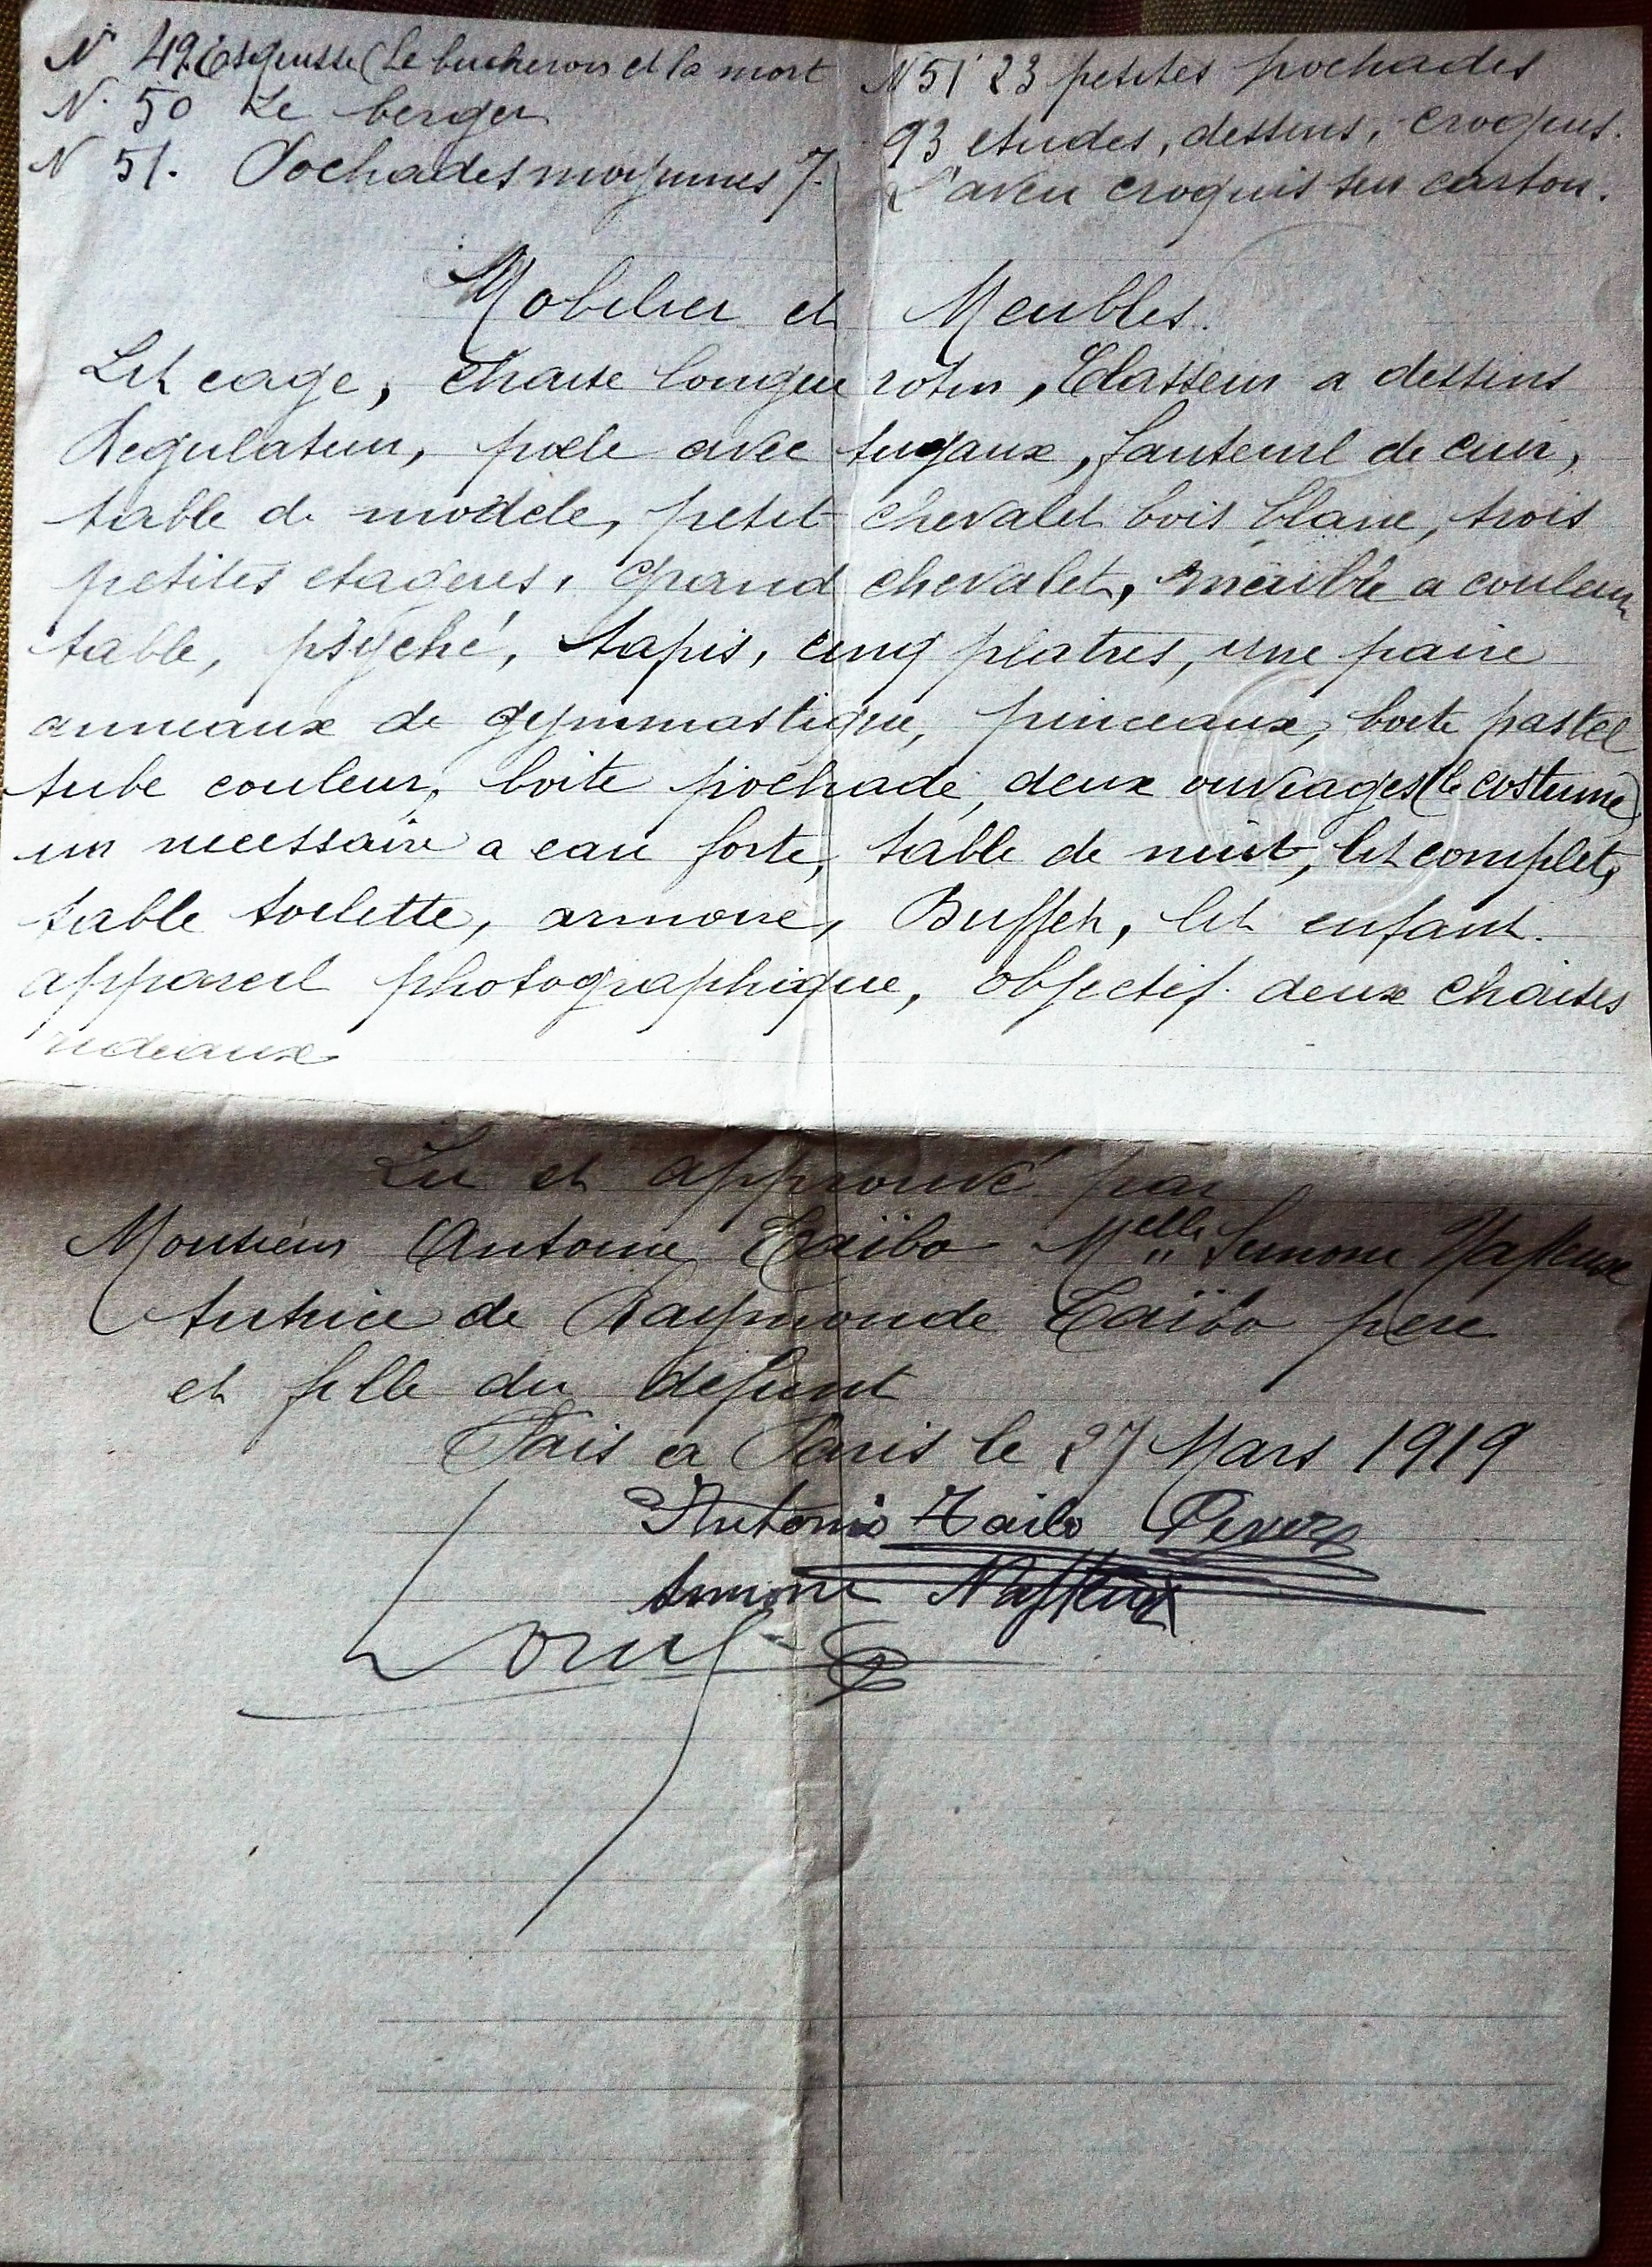 N° 49 Esquisse (Le bucheron et la mort
N. 50 Le berger
N 51. Pochades moyennes 7.
N 51 23 petites pochades
93 etudes, dessins, croquis.
L'aveu croquis sur carton.
Mobilier et Meubles.
Lit cage, chaise longue rotin, Classeur a dessins
Regulateur, poele avec tuyaux, fauteuil de cuir,
table de modele, petit chevalet bois blanc, trois
petites etageres, grand chevalet, meuble a couleur
table, psyché, tapis, cinq platres, une paire
anneaux de gymnastique, pinceaux, boite pastel
tube couleur, boite pochade, deux ouvrages (le costume)
un necessaire a eau forte, table de nuit, lit complet,
table toilette, armoire, Buffet, lit enfant.
appareil photographique, objectif. deux chaises
rideaux
Lu et approuvé par
Monsieur Antoine Taïbo Melle Simone
tutrice de Raymonde Taïbo pere
et fille du defunt
Fais a Paris le 27 Mars 1919
Antonio Taibo
Simone